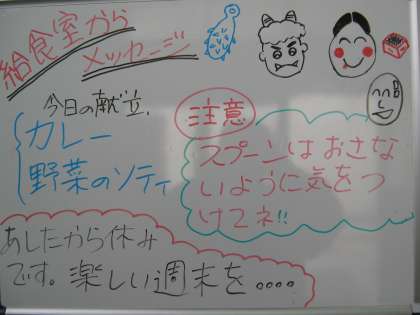 給食室から
メッセージ
今日の献立.
カレー
野菜のソティ
注意
スプーンはおさな
いように気をつ
けてネ!!
あしたから休み
です。楽しい週末を....